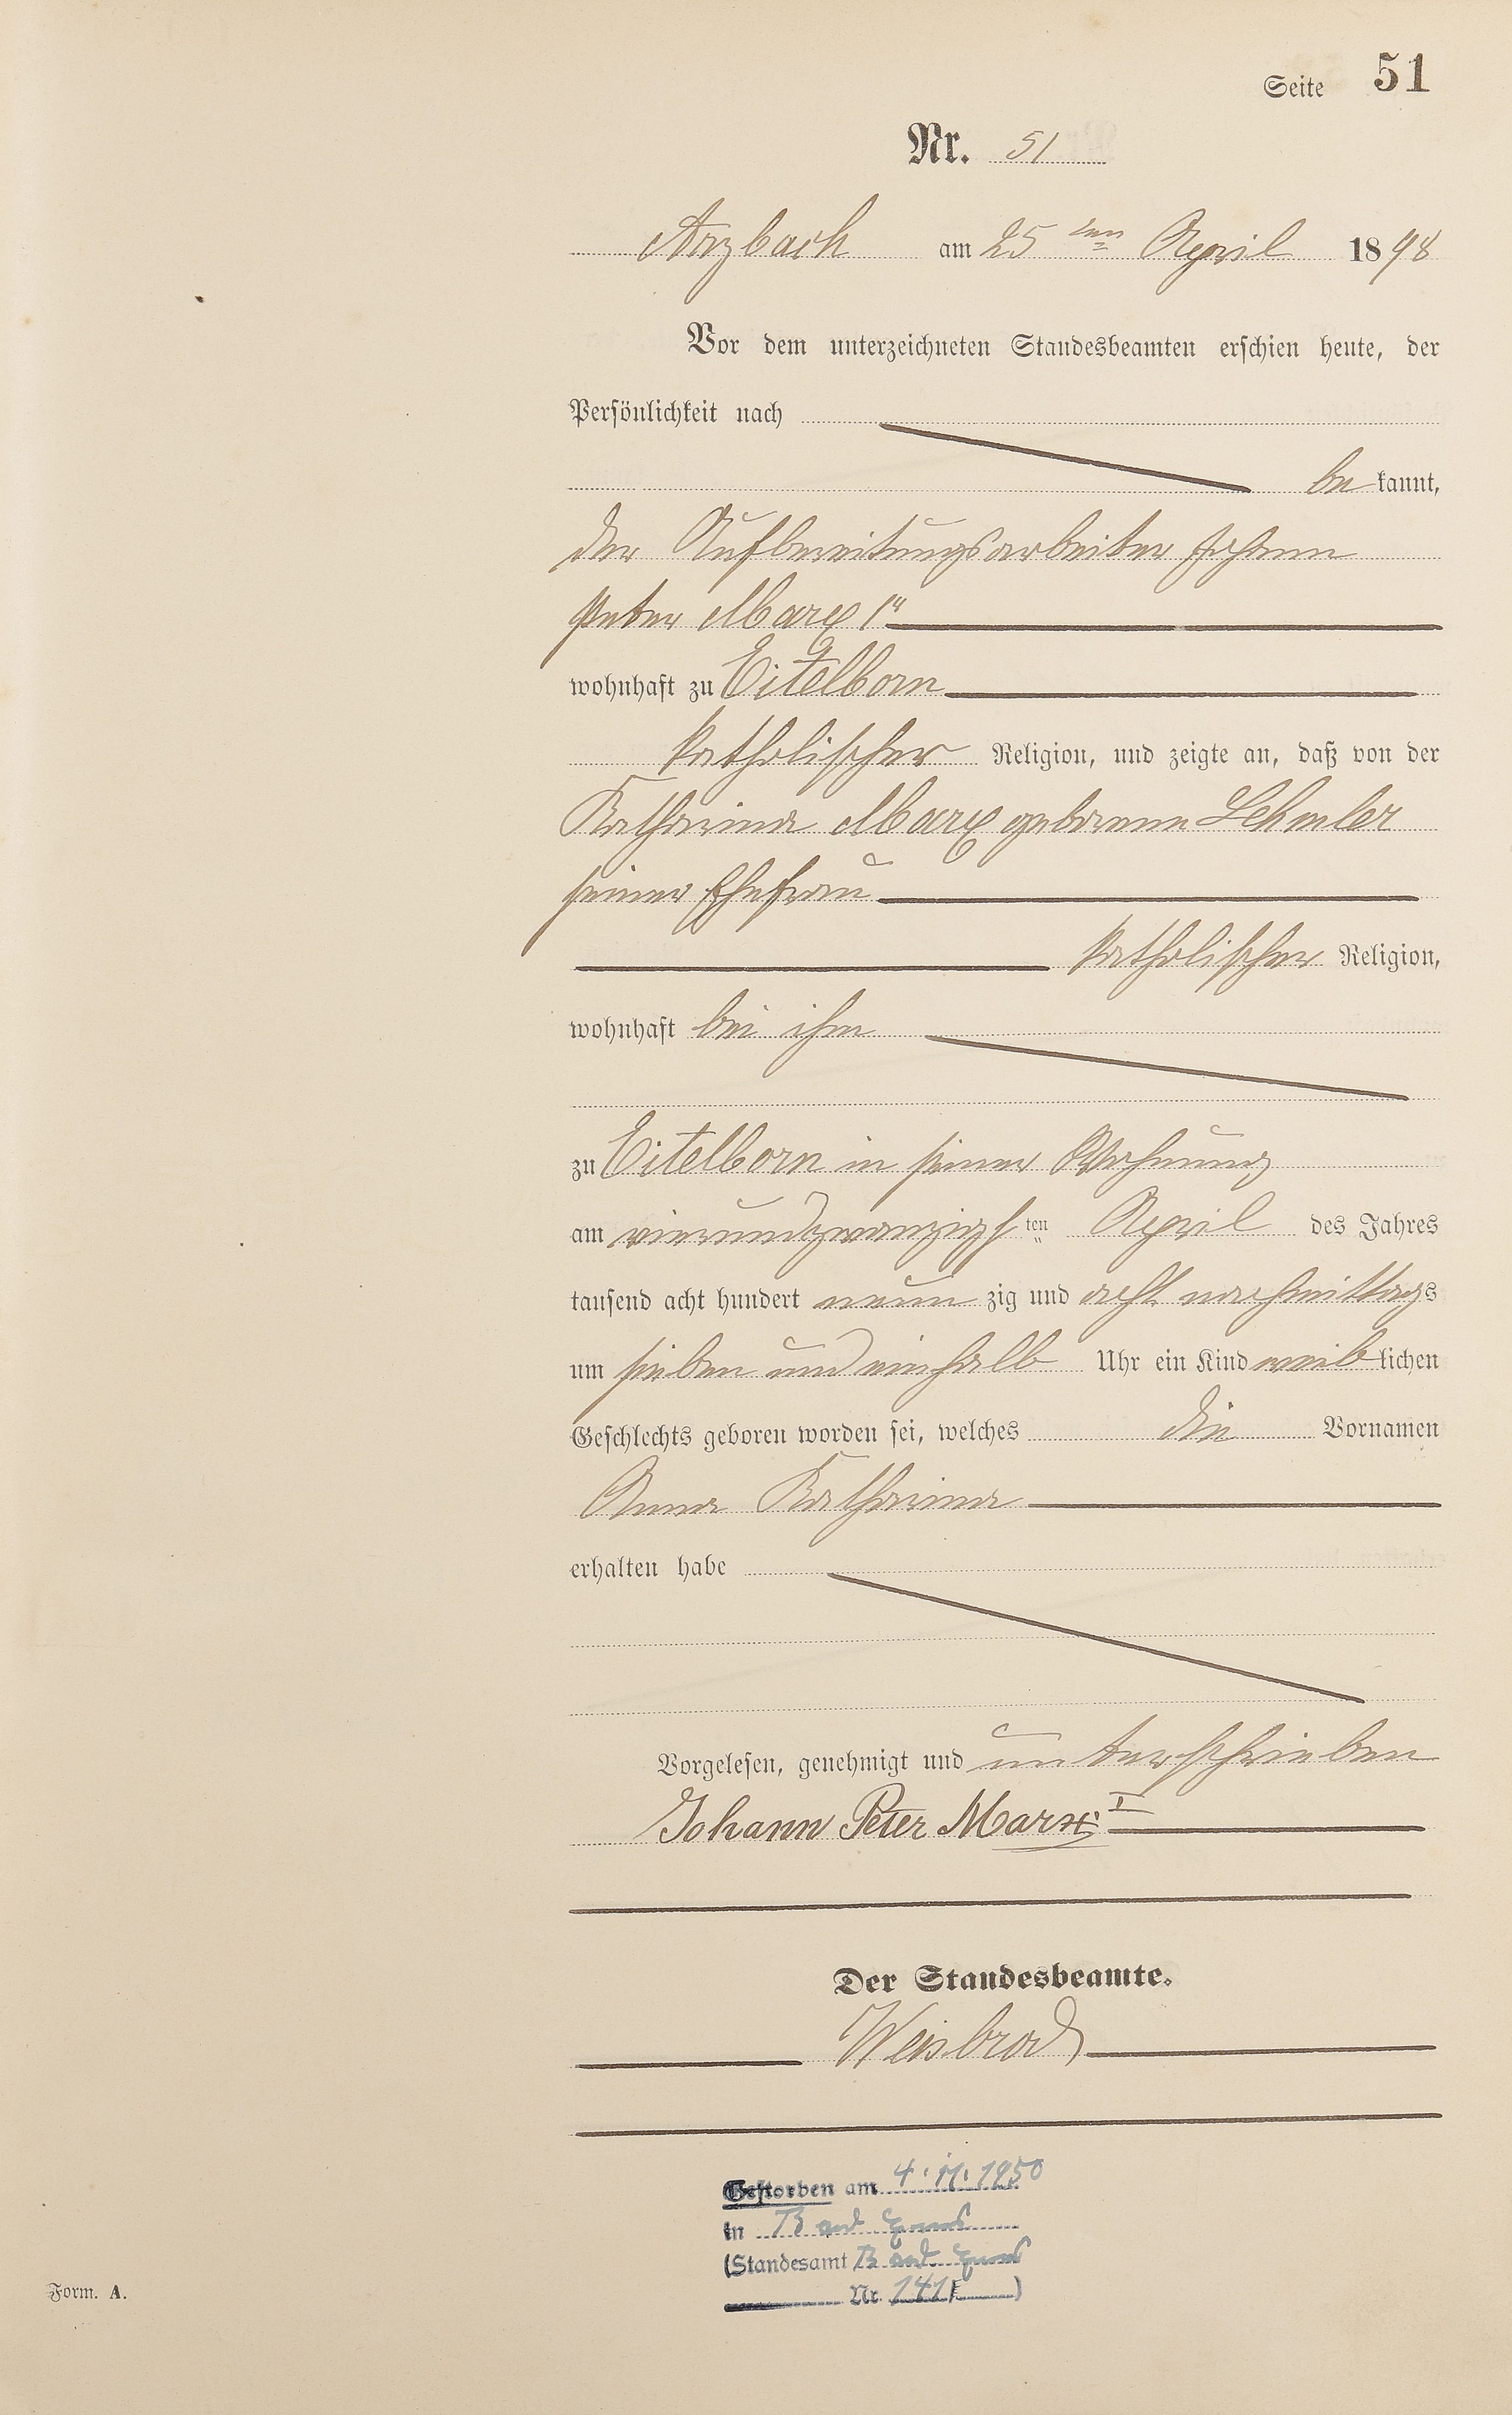 Seite 51
Nr. 51
Arzbach am 25 ten April 1898
Vor dem unterzeichneten Standesbeamten erschien heute, der
Persönlichkeit nach
be kannt,
der Aufbereitungsarbeiter Johann
Peter Marx 1ʳ
wohnhaft zu Eitelborn
katholischer Religion, und zeigte an, daß von der
Katharina Marx geborene Lehmler
seiner Ehefrau
katholischer Religion,
wohnhaft bei ihm
zu Eitelborn in seiner Wohnung
am vierundzwanzigs ten April des Jahres
tausend acht hundert neun zig und acht nachmittags
um sieben und einhalb Uhr ein Kind weib lichen
Geschlechts geboren worden sei, welches die Vornamen
Anna Katharina
erhalten habe
Vorgelesen, genehmigt und unterschrieben
Johann Peter Marx I
Der Standesbeamte.
Weisbrod
Gestorben am 4.11.1950
in Bad Ems
(Standesamt Bad Ems
Nr.
Form. A.